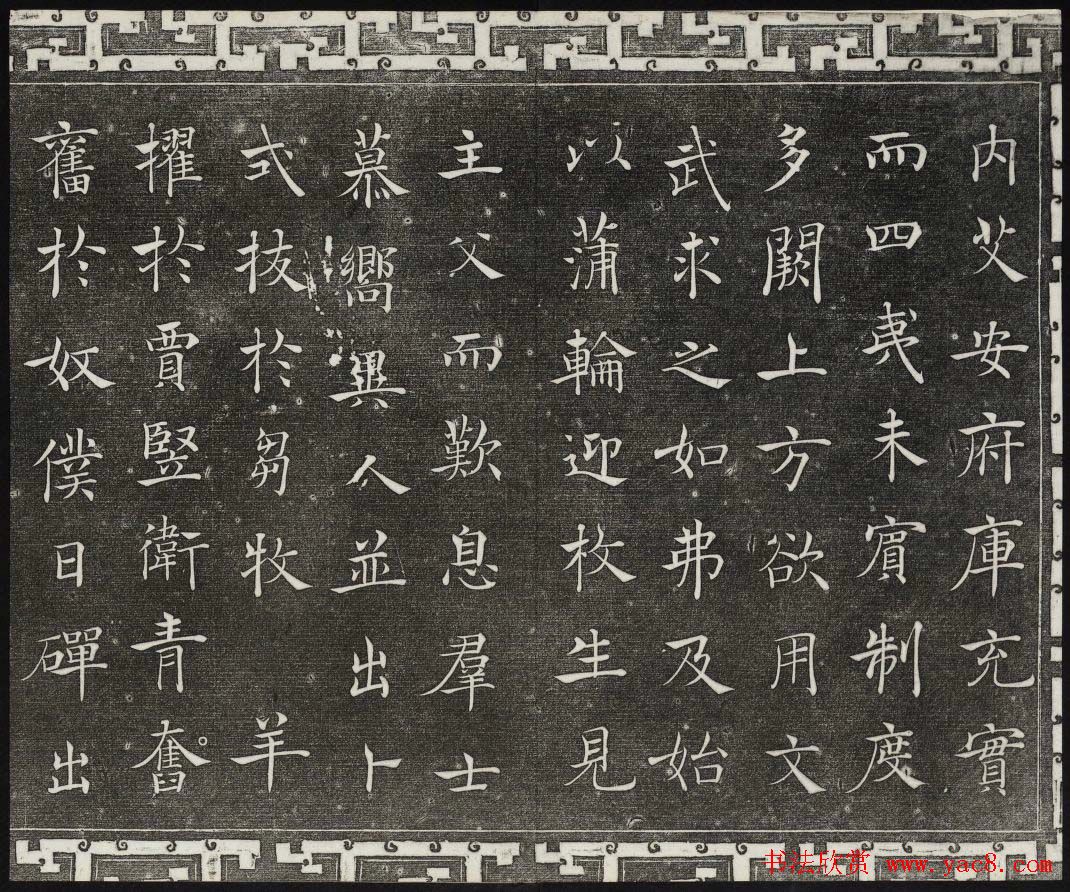 内艾安府庫充實
而四夷未賓制度
多闕上方欲用文
武求之如弗及始
以蒲輪迎枚生見
主父而歎息羣士
慕嚮異人並出卜
式拔於芻牧 羊
擢於賈豎衛青奮
奮於奴僕日磾出
书法欣赏 www.yac8.com